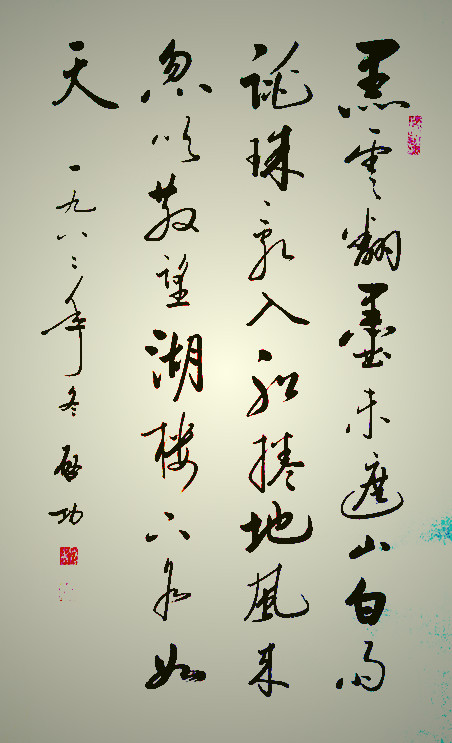 黑雲翻墨未遮山白雨
跳珠亂入船捲地風來
忽吹散望湖樓下水如
天 一九八二年冬 啟功